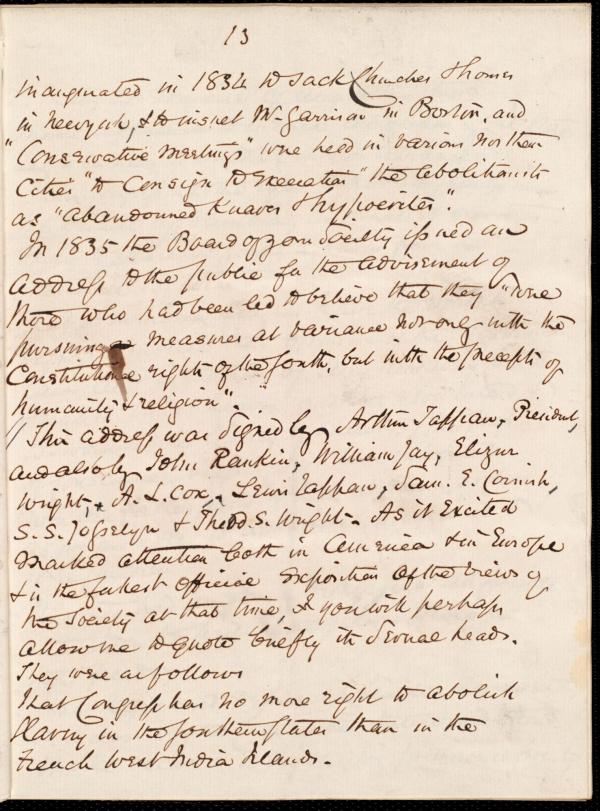 13
inaugurated in 1834 to sack Churches & homes
in New york, & to insult Mr Garrison in Boston, and
"Conservative Meetings" were held in various Northern
Cities "to Consign to execration" the abolitionists
as "abandonned Knaves & hypocrites".
In 1835 the Board of your Society issued an
address to the public for the advisement of
those who had been led to believe that they "were
pursuing measures at variance not only with the
Constitutional rights of the South, but with the precepts of
humanity & religion".
// This address was signed by Arthur Tappan, President,
and also by John Rankin, William Jay, Elizur
Wright, A. L. Cox, Lewis Tappan, Sam. E. Cornish,
S. S. Jocelyn & Theod. S. Wright. As it excited
marked attention both in America & in Europe
& is the fullest official exposition of the views of
the Society at that time, you will perhaps
allow me to quote briefly its several heads.
They were as follows
That Congress has no more right to abolish
Slavery in the Southern States than in the
French West India Islands.